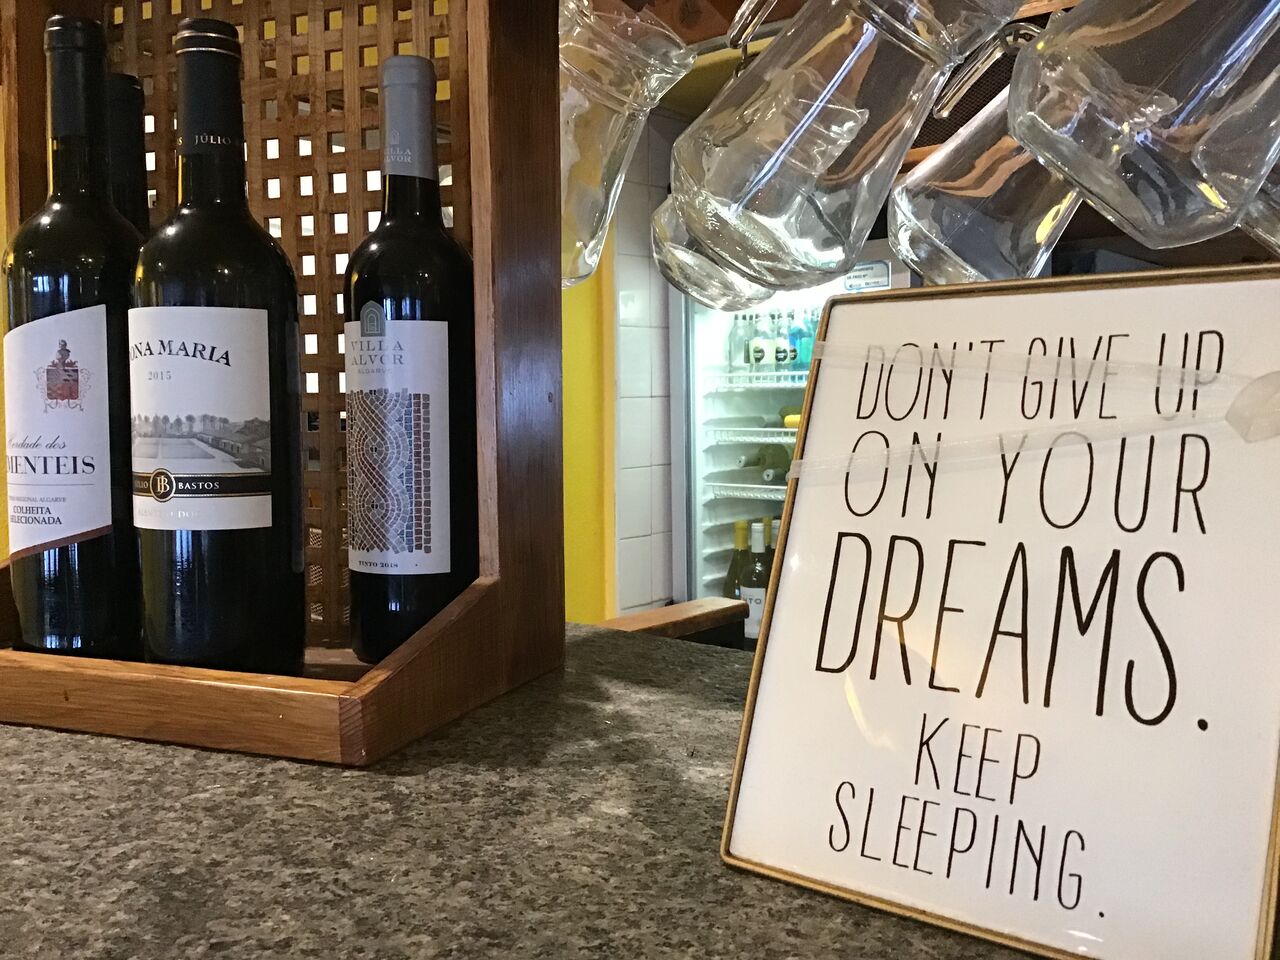 erdade dos
MENTEIS
REGIONAL ALGARVE
COLHEITA
SELECIONADA
JÚLIO
ONA MARIA
2015
JÚLIO B BASTOS
VILLA
ALVOR
VILLA
ALVOR
ALGARVE
TINTO 2018
DON'T GIVE UP
ON YOUR
DREAMS.
KEEP
SLEEPING.